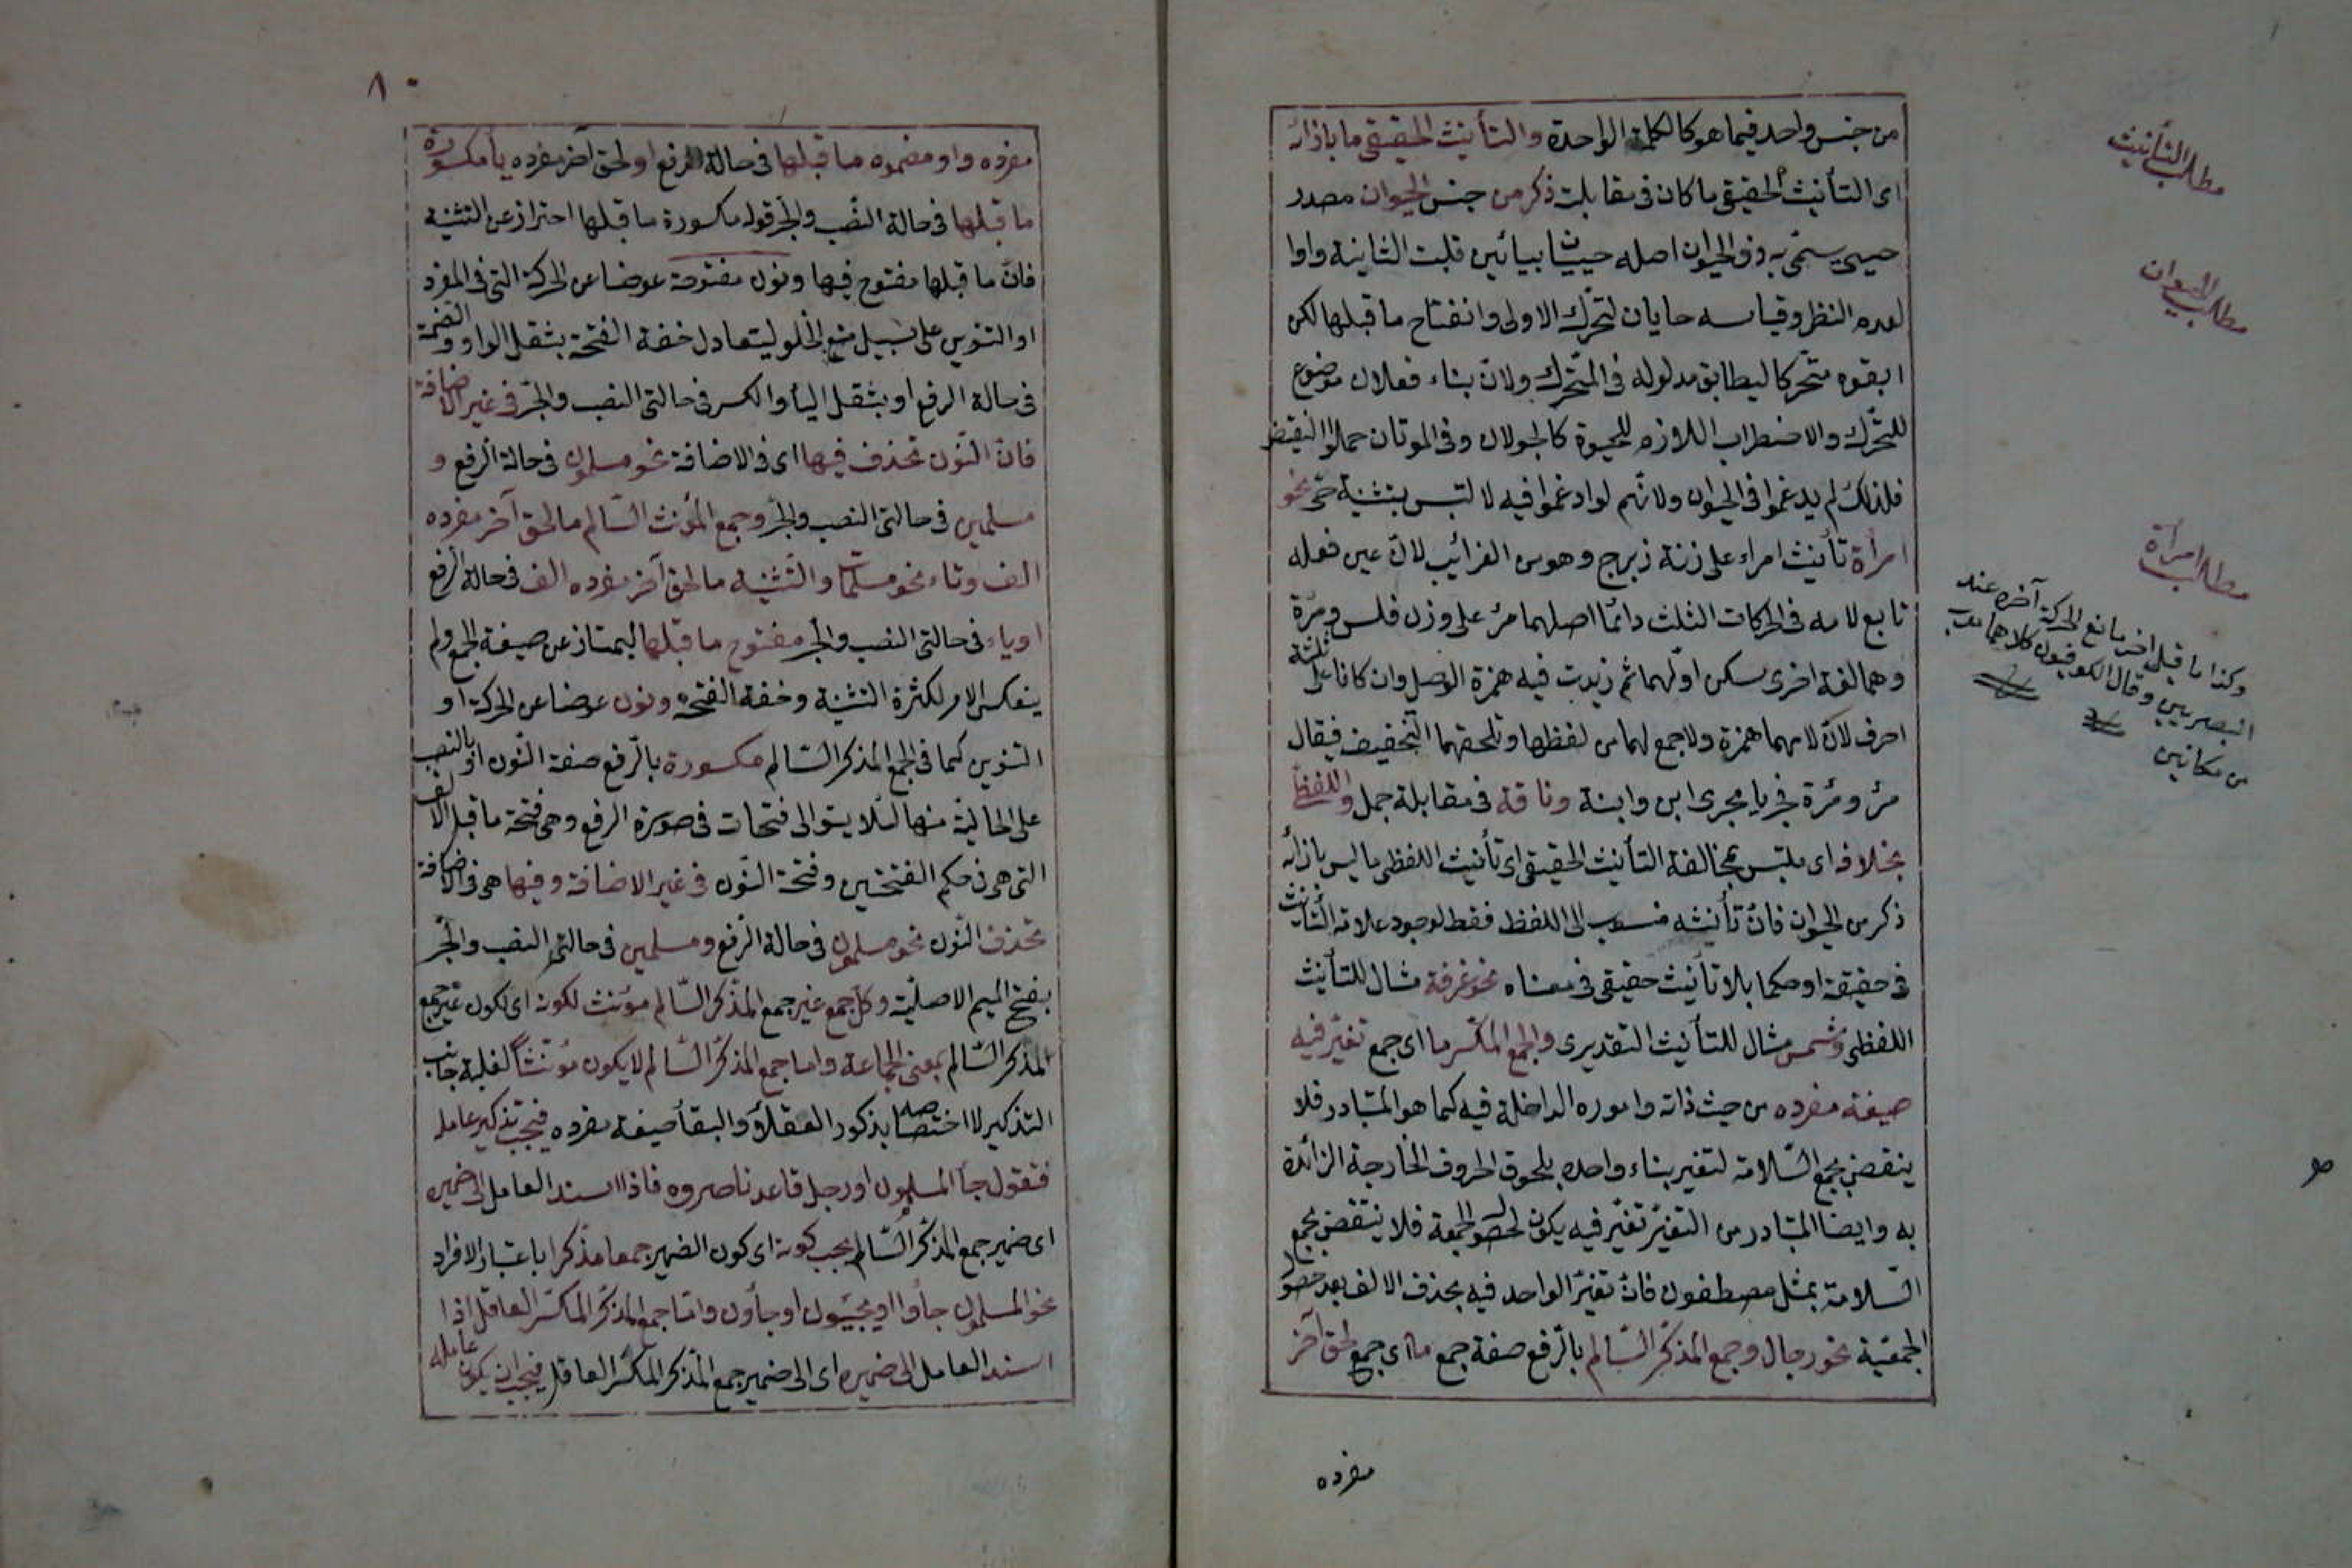 من جنس واحد فيما هو كالكلمة الواحدة والتأنيث الحقيقى ما بازائه
اى التأنيث الحقيقى ما كان فى مقابلته ذكر من جنس الحيوان مصدر
حيى سمى به ذو الحيوان اصله حييان بيائين قلبت الثانية واوا
لعدم النظر وقياسه حايان لتحرك الاولى وانفتاح ما قبلها لكن
ابقوه متحركا ليطابق مدلوله فى المتحرك ولان بناء فعلان موضوع
للتحرك والاضطراب اللازم للحيوة كالجولان وفى الموتان حملوا النقيض
فلذلك لم يدغموا فى الحيوان ولانهم لو ادغموا فيه لالتبس بتثنية حى نحو
امرأة تأنيث امراء على زنة زبرج وهو من الغرائب لان عين فعله
تابع لامه فى الحركات الثلث دائما اصلهما مرء على وزن فلس ومرة
وهما لغة اخرى سكن اولهما ثم زيدت فيه همزة الوصل وان كانا على ثلثة
احرف لان لامهما همزة ولا جمع لهما من لفظها وتلحقهما التخفيف فيقال
مرء ومرة فجريا مجرى ابن وابنة وناقة فى مقابلة جمل واللفظى
بخلافه اى ملتبس بمخالفة التأنيث الحقيقى اى تأنيث اللفظى ما ليس بازائه
ذكر من الحيوان فان تأنيثه منسوب الى اللفظ فقط لوجود علامة التأنيث
فى حقيقة او حكما بلا تأنيث حقيقى فى معناه نحو غرفة مثال للتأنيث
اللفظى وشمس مثال للتأنيث التقديرى والجمع المكسر ما اى جمع تغير فيه
صيغة مفرده من حيث ذاته واموره الداخلة فيه كما هو المتبادر فلا
ينتقض بجمع السلامة لتغير بناء واحده بلحوق الحروف الخارجة الزائدة
به وايضا المتبادر من التغير تغير فيه يكون لحصول الجمعية فلا ينتقض بجمع
السلامة بمثل مصطفون فان تغير الواحد فيه بحذف الالف بعد حصول
الجمعية نحو رجال وجمع المذكر السالم بالرفع صفة جمع ما اى جمع لحق آخر
مفرده
مطلب التأنيث
مطلب الحيوان
مطلب امرأة
وكذا ما قبل اخر مانع لحركة آخره عند
البصريين وقال الكوفيون كلاهما معرب
من مكانين
٨٠
مفرده واو مضموم ما قبلها فى حالة الرفع او لحق آخر مفرده ياء مكسورة
ما قبلها فى حالة النصب والجر قوله مكسورة ما قبلها احتراز عن التثنية
فان ما قبلها مفتوح فيها ونون مفتوحة عوضا عن الحركة التى فى المفرد
او التنوين على سبيل منع الخلو ليتعادل خفة الفتحة بثقل الواو والضمة
فى حالة الرفع او بثقل الياء والكسر فى حالتى النصب والجر فى غير الاضافة
فان النون تحذف فيها اى فى الاضافة نحو مسلمون فى حالة الرفع و
مسلمين فى حالتى النصب والجر وجمع المؤنث السالم ما لحق آخر مفرده
الف وتاء نحو مسلمات والتثنية ما لحق آخر مفرده الف فى حالة الرفع
او ياء فى حالتى النصب والجر مفتوح ما قبلها ليمتاز عن صيغة الجمع ولم
ينعكس الامر لكثرة التثنية وخفة الفتحة ونون عوضا عن الحركة او
التنوين كما فى الجمع المذكر السالم مكسورة بالرفع صفة النون او بالنصب
على الحالية منها لئلا يتوالى فتحات فى صورة الرفع وهى فتحة ما قبل الالف
التى هى فى حكم الفتحتين وفتحة النون فى غير الاضافة وفيها هى فى الاضافة
تحذف النون نحو مسلمون فى حالة الرفع ومسلمين فى حالتى النصب والجر
بفتح الميم الاصلية وكل جمع غير جمع المذكر السالم مؤنث لكونه اى لكون غير جمع
المذكر السالم بمعنى الجماعة واما جمع المذكر السالم لا يكون مؤنثا لغلبة جانب
التذكير لاختصاصه بذكور العقلاء والبقاء صيغة مفرده فيجب تذكير عامله
فتقول جاء المسلمون او رجل قاعد ناصروه فاذا اسند العامل الى ضميره
اى ضمير جمع المذكر السالم يجب كونه اى كون الضمير جمعا مذكرا باعتبار الافراد
نحو المسلمون جاؤا او يجيئون او جاؤن واما جمع المذكر المكسر العاقل اذا
اسند العامل الى ضميره اى الى ضمير جمع المذكر المكسر العاقل فيجب ان يكون عامله